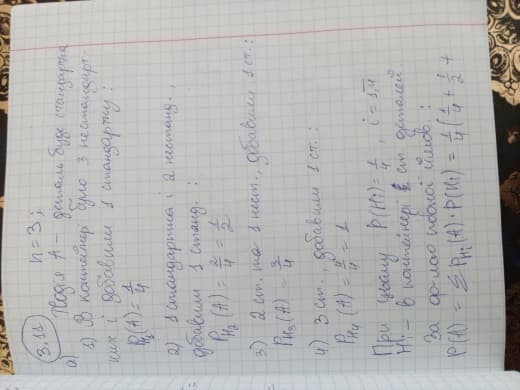 3.11 n = 3;
а) Подія А – деталь буде стандартна
1) В контейнері було 3 нестандарт-
них і добавили 1 стандартну :
P_{H_1}(A) = 1/4
2) 1 стандартна і 2 нестанд.,
добавили 1 станд. :
P_{H_2}(A) = 2/4 = 1/2
3) 2 ст. та 1 нест., добавили 1 ст.:
P_{H_3}(A) = 3/4
4) 3 ст., добавили 1 ст. :
P_{H_4}(A) = 4/4 = 1
При цьому P(H_i) = 1/4 , i = 1,4
H_i – в контейнері ст. деталей
За ф-лою повної ймов. :
P(A) = Σ P_{H_i}(A) · P(H_i) = 1/4 ( 1/4 + 1/2 +